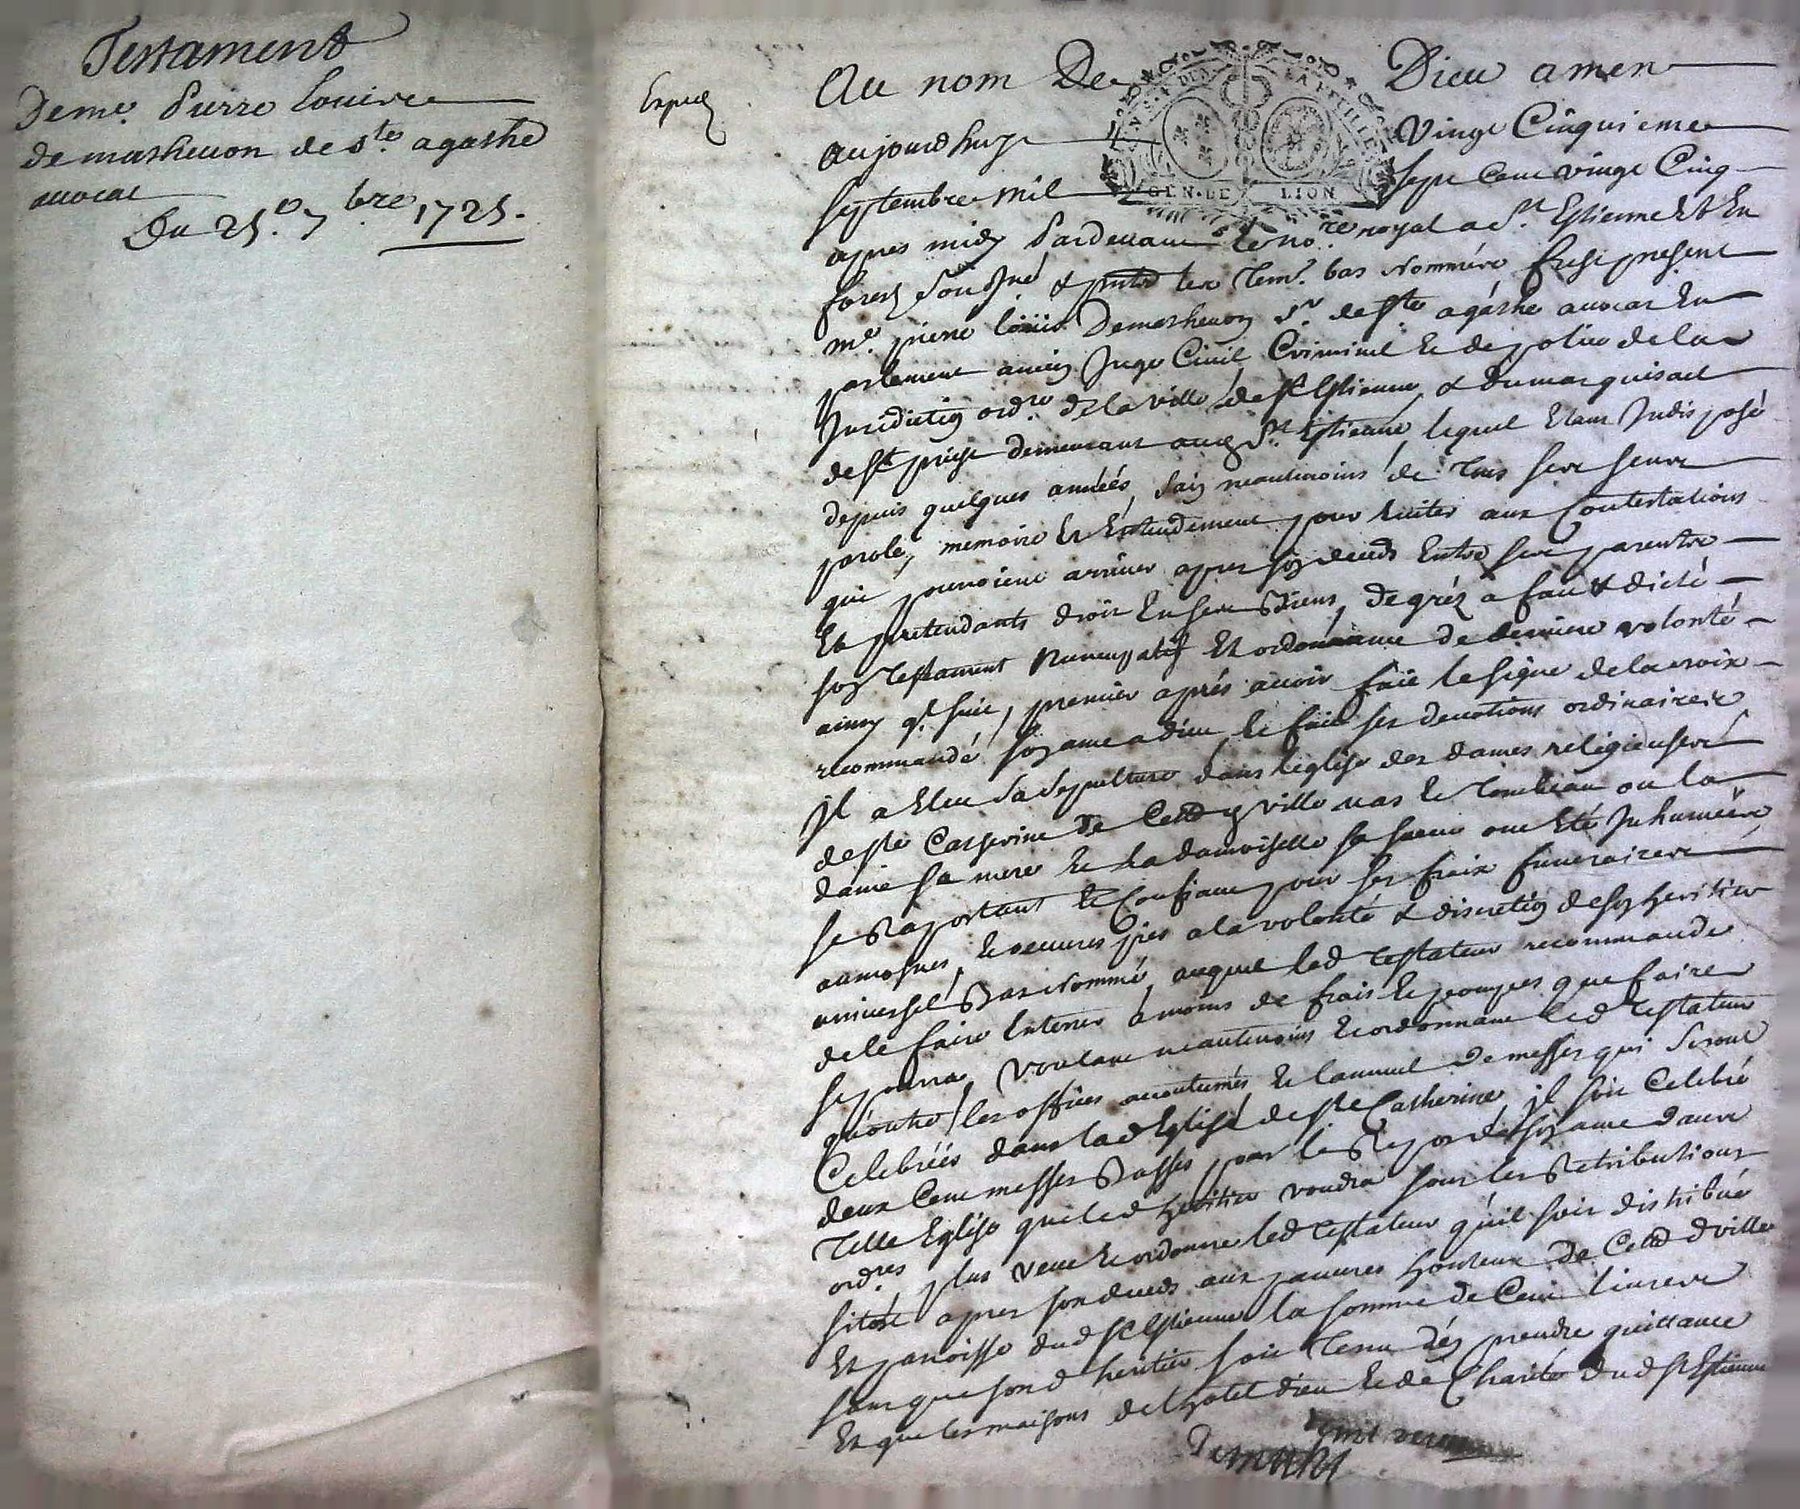 Testament
De me. Pierre Louis
de mathevon de ste. agathe
avocat
Du 25.e 7bre 1725.
Exped
Au nom De Dieu amen
aujourdhuy vingt Cinquieme
septembre mil sept cent vingt Cinq
apres midy Pardevant le no.re royal a St. Estienne Et En
forest sousne. & pntz les tem. bas nommés fust present
me. pierre Louis Demathevon sr. de ste agathe avocat En
parlement ancien Juge Civil Criminel Et de police de la
Juridiction ordre. de la ville de St Estienne & du marquisat
de St priest demeurant aud St Estienne, lequel Etant Indisposé
depuis quelques années, sain neantmoins de tous ses sens
parole, memoire Et Entendement pour Eviter aux Contestations
qui pourroient arriver apres son deceds Entre ses parents
Et pretendants droit En ses Biens, de gréz a fait & dicté
son testament nuncupatif Et ordonnance de derniere volonté
ainsy qt. suit, premier aprés avoir fait le signe de la croix
recommandé son ame a dieu Et fait ses devotions ordinaires
Jl a Eleu sa sepulture dans l'eglise des dames religieuses
de ste Catherine de Cette ville vas Et tombeau ou la
dame sa mere Et la damoiselle sa soeur ont Eté Inhumées
se Raportant Et Confiant pour ses fraix funeraires
aumosnes, Et oeuvres pies a la volonté & discretion de son heritier
universel Bas nommé, auquel led testateur recommande
de le faire Enterrer a moins de frais Et pompes que faire
se pourra, voulant neantmoins Et ordonnant led testateur
qu'outre les offices acoutumés Et lannuel de messes qui seront
Celebréés dans lad Eglise de ste Catherine, jl soit Celebré
deux Cent messes Basses pour le Repos de son ame dans
telle Eglise que led heritier voudra sous les Retributions
ordres, plus veut Et ordonne led testateur qu'il soit distribué
sitost apres son deceds aux pauvres honteux de Cette d ville
Et paroisse dud St Estienne la somme de Cent livres
sans que sond heritier soit tenu d'en prendre quittance
Et que les maisons de l'hotel dieu Et de Charité dud St Estienne